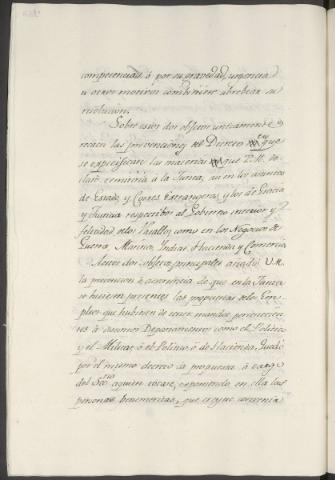 competencias, ó por su gravedad, urgencia
u otros motivos combiniere abrebiar su
resolucion.
Sobre estos dos objetos unicamente
recaen las prevenciones del Decreto en que
se expecifican las materias que V.M. de-
claró remitiria á la Junta, sea en los asuntos
de Estado, y Cortes Extrangeras, y los de Gracia
y Justicia respectibos al Gobierno interior y
felicidad de los Vasallos, como en los Negocios de
Guerra, Marina, Indias, Hacienda y Comercio.
A estos dos objetos principales añadió V.M.
la prevencion ó advertencia de que en la Junta
se hiciesen presentes las propuestas de los Em-
pleos que hubiesen de tener mando perteneciente
á diversos Departamentos como el Politico
y el Militar, ó el Politico, ó de Hacienda, quedó
por el mismo decreto la propuesta á cargo
del Srio. á quien tocare, exponiendo en ella las
personas benemeritas, que creyese convenia